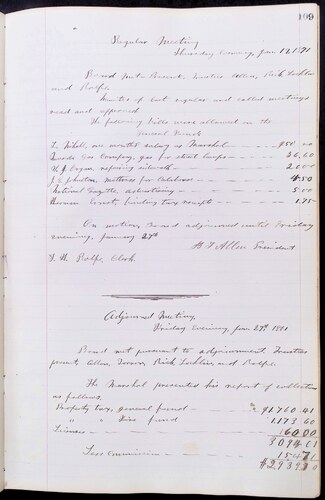 109
Regular Meeting
Thursday Evening, Jan 17, 1891
Board met. Present, Trustees Allen, Rich, Lochlin
and Rolfe.
Minutes of last regular and called meetings
read and approved.
The following bills were allowed on the
General Fund:
one months salary as Marshal 50 00
Gas Company, gas for street lamps 36.60
repairing sidewalk 2.00
J. Johnston, mattress for Calaboose 4.50
National Gazette, advertising 5.00
Court, binding tax receipts 1.75
On motion, Board adjourned until Friday
evening, January 27th
B. F. Allen President
T. H. Rolfe, Clerk
Adjourned Meeting,
Friday Evening, Jan 27th 1891
Board met pursuant to adjournment, Trustees
present, Allen, Rich, Lochlin, and Rolfe.
The Marshal presented his report of collections
as follows:
Property tax, general fund $1,760.41
" " Fire fund 1,173 60
Licenses 160.00
3,094 01
Less Commission 154 70
$2,939 31